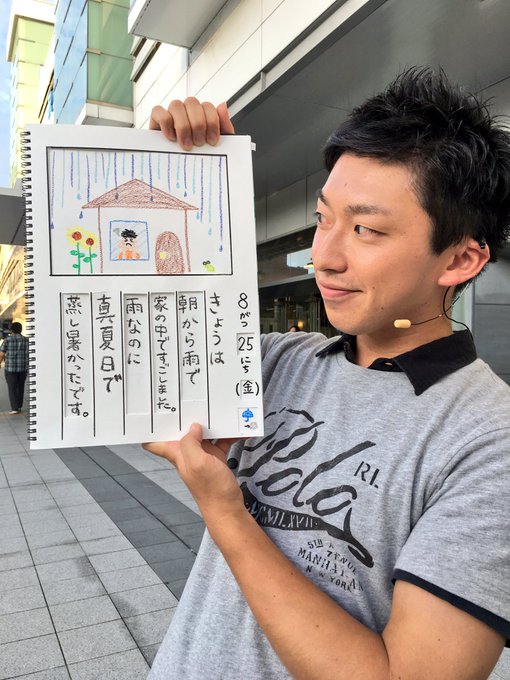 8がつ25にち(金)
きょうは
朝から雨で
家の中ですごしました。
雨なのに
真夏日で
蒸し暑かったです。
Polo
RL
5TH AVENUE
MANHATTAN
NEW YORK